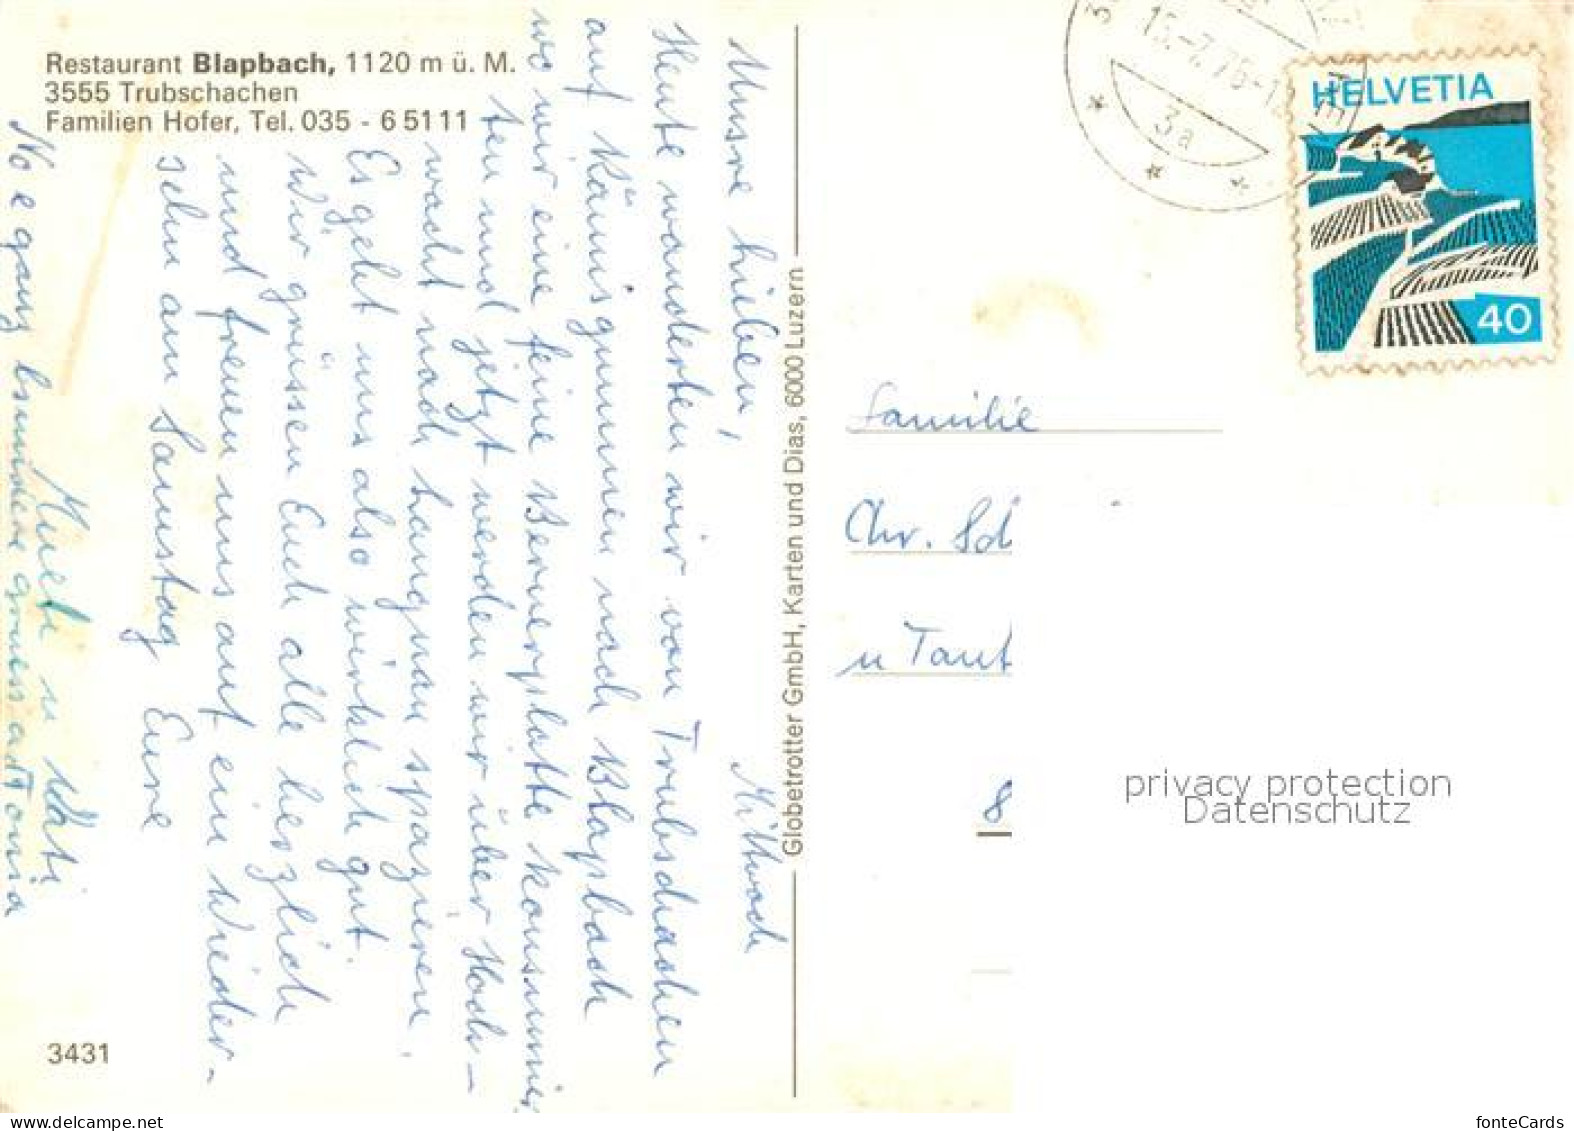 Restaurant Blapbach, 1120 m ü. M.
3555 Trubschachen
Familien Hofer, Tel. 035 - 6 51 11
Mittwoch
Unsre lieben,
Heute wanderten wir von Trubschachen
auf Känisgummen nach Blapbach
wo wir eine feine Bernerplatte konsumier
ten und jetzt werden wir über Hoch-
wacht nach Langnau spazieren.
Es geht uns also wirklich gut.
Wir grüssen Euch alle herzlich
und freuen uns auf ein Wieder-
sehn am Samstag Eure
Mueti u Käti
No e ganz bsundere gruess a d Tonia
3431
Globetrotter GmbH, Karten und Dias, 6000 Luzern
15.-7.75-1
3a
HELVETIA
40
Familie
Chr. Sch
u Tant
8
privacy protection
Datenschutz
www.delcampe.net
fonteCards